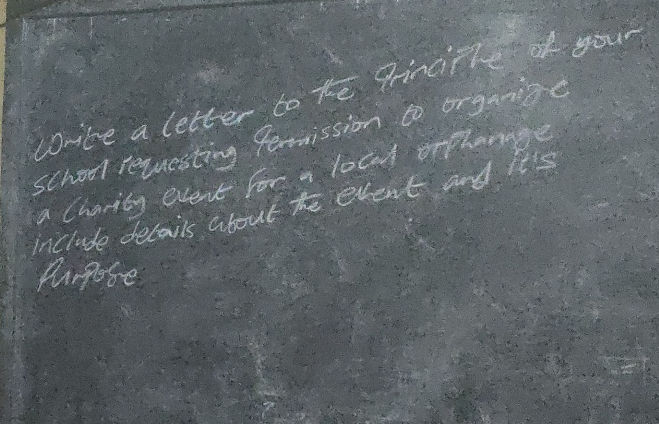 Write a letter to the Principle of your
school requesting Permission to organize
a Charity event for a local orphanage
Include details about the event and it's
Purpose